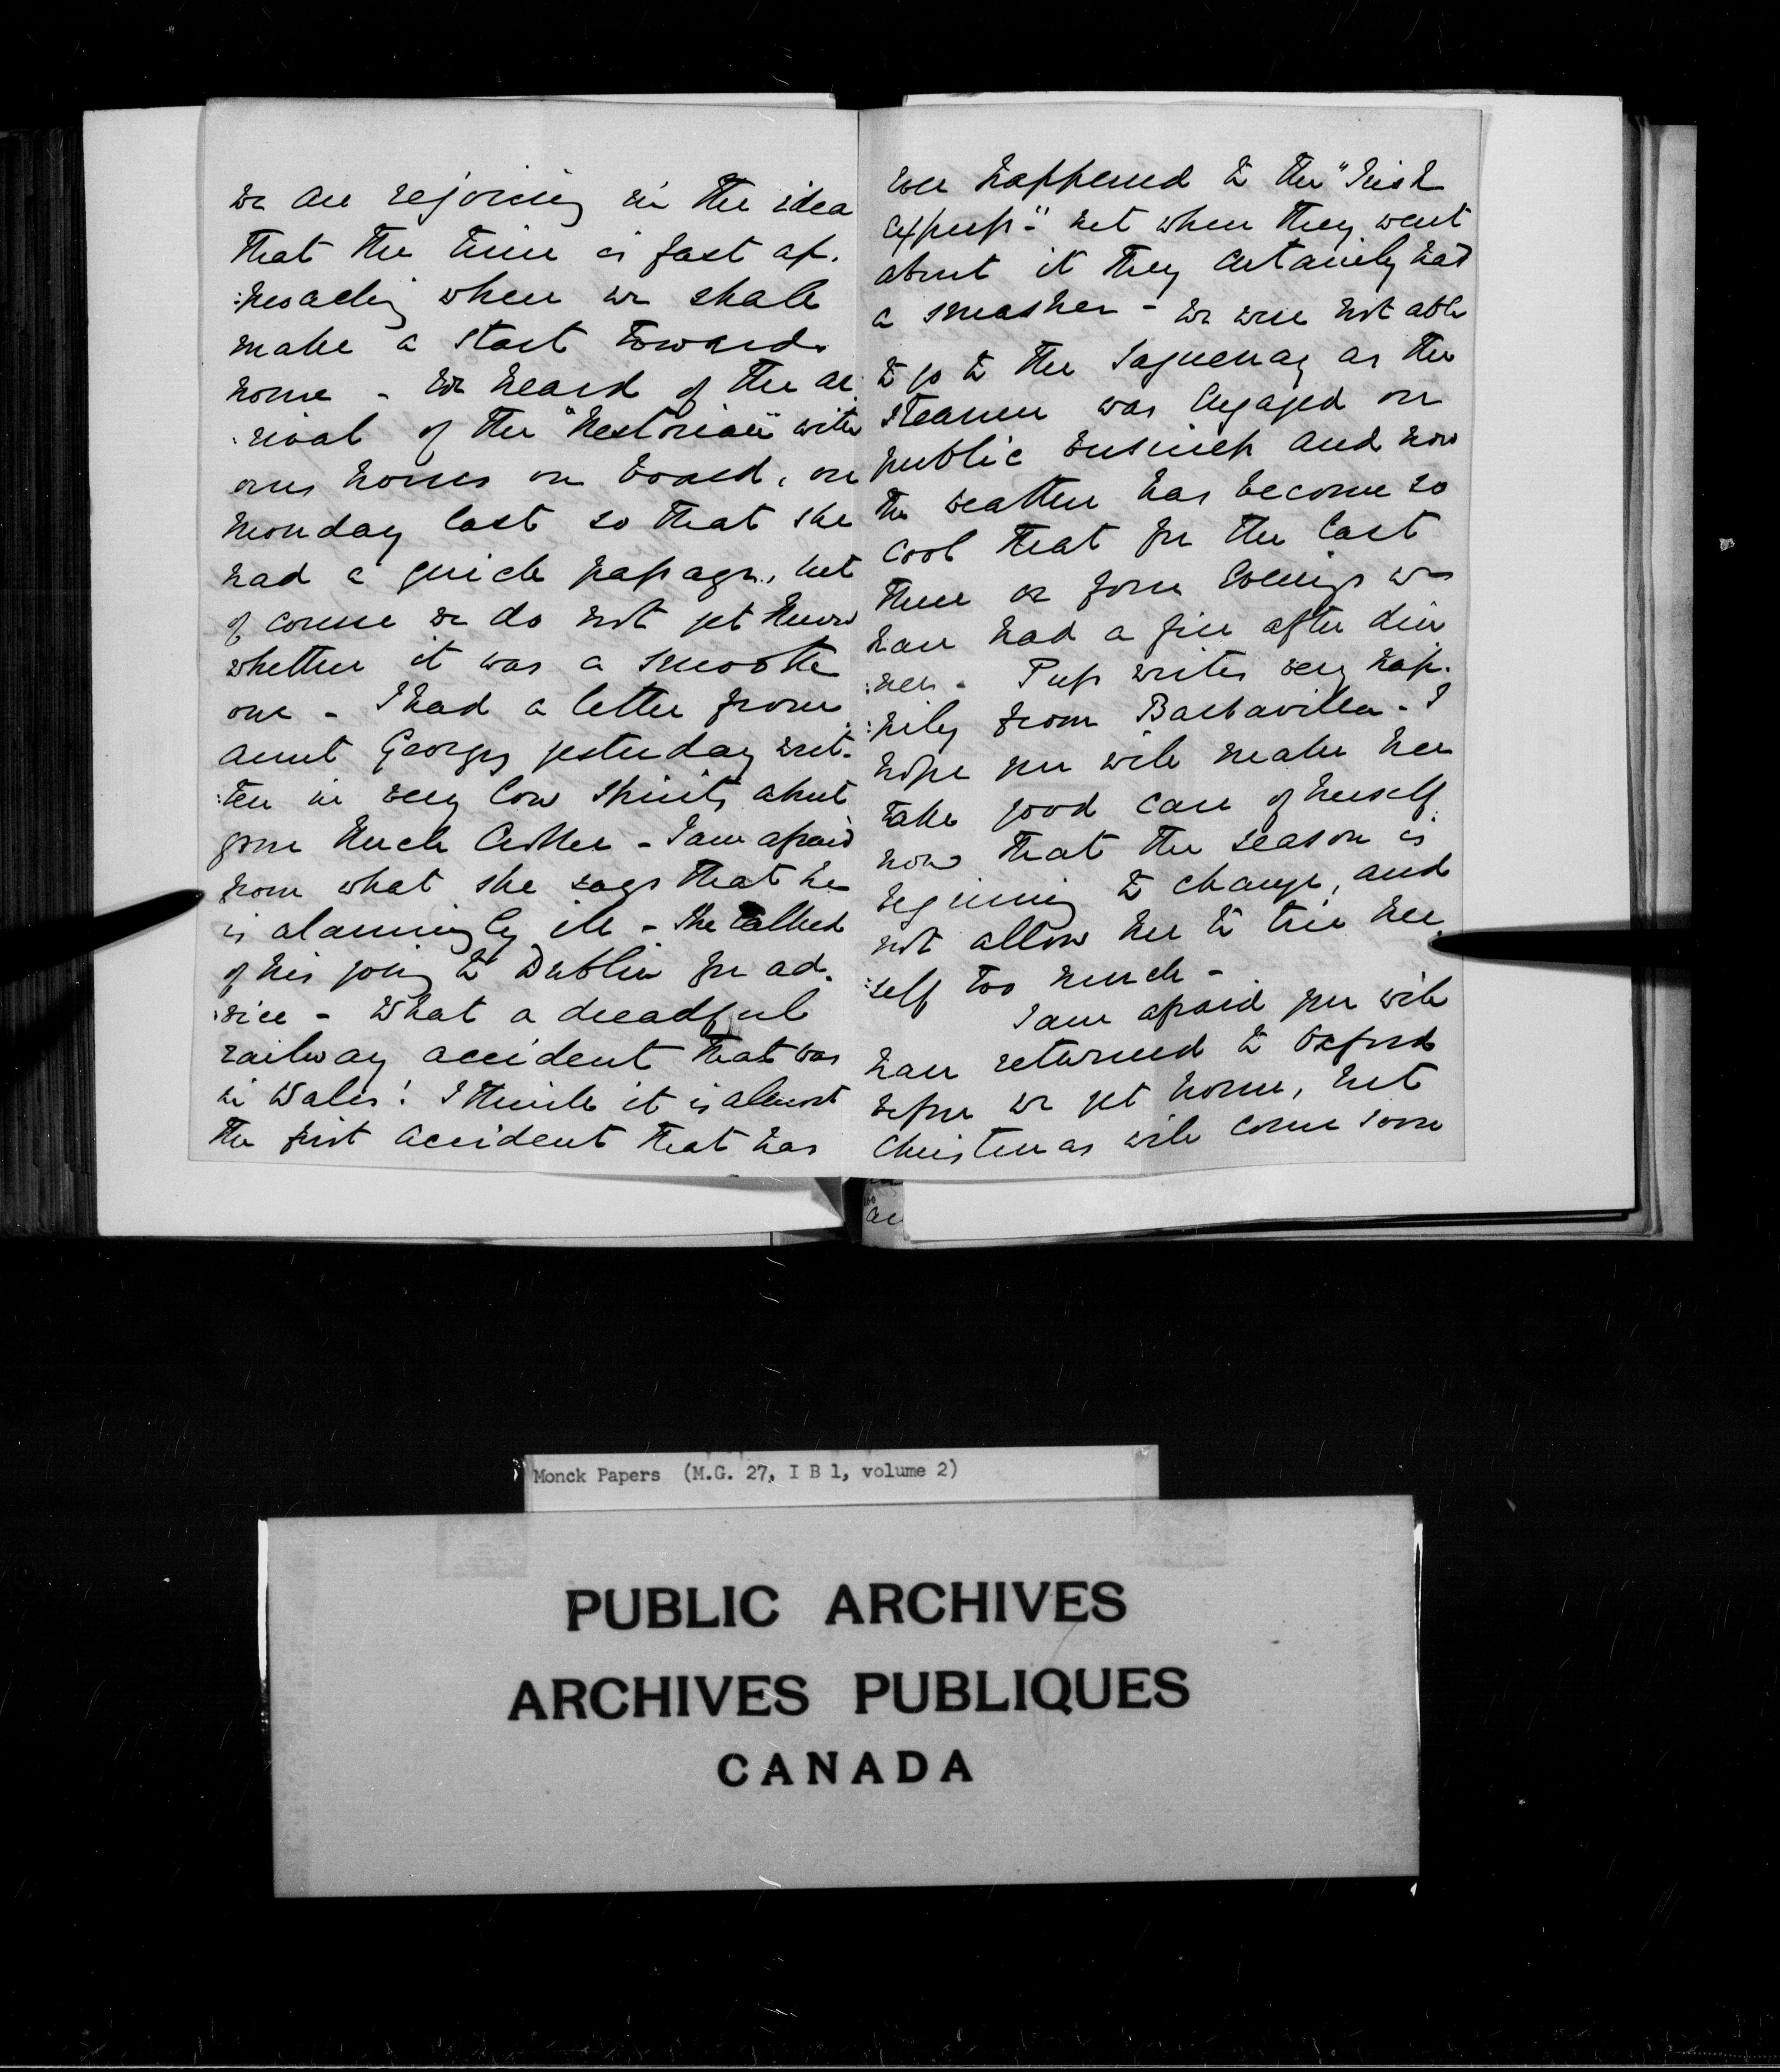 we are rejoicing in the idea
that the time is fast ap-
:proaching when we shall
make a start towards
home - We heard of the ar
:rival of the "Nestorian" with
our horses on board, on
Monday last so that she
had a quick passage, but
of course we do not yet know
whether it was a smooth
one - I had a letter from
Aunt Georgy yesterday writ-
:ten in very low spirits about
poor Uncle Arthur - I am afraid
from what she says that he
is alarmingly ill - She talked
of his going to Dublin for ad-
:vice - What a dreadful
railway accident that was
in Wales! I think it is almost
the first accident that has
ever happened to the "Irish
express" but when they went
about it they certainly had
a smasher - We were not able
to go to the Saguenay as the
steamer was engaged on
public business and now
the weather has become so
cool that for the last
three or four evenings we
have had a fire after din
:ner - Puss writes very hap-
:pily from Barbavilla - I
hope you will make her
take good care of herself
now that the season is
beginning to change, and
not allow her to tire her
:self too much -
I am afraid you will
have returned to Oxford
before we get home, but
Christmas will come soon
Monck Papers (M.G. 27, I B 1, volume 2)
PUBLIC ARCHIVES
ARCHIVES PUBLIQUES
CANADA